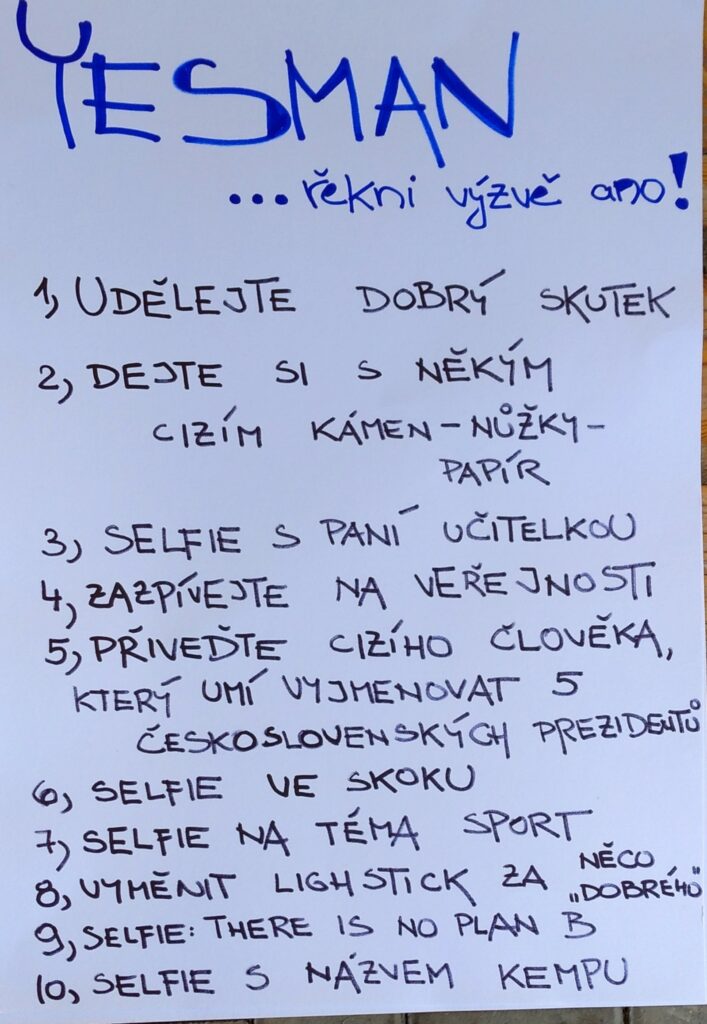 YESMAN
...řekni výzvě ano!
1, UDĚLEJTE DOBRÝ SKUTEK
2, DEJTE SI S NĚKÝM
CIZÍM KÁMEN-NŮŽKY-
PAPÍR
3, SELFIE S PANÍ UČITELKOU
4, ZAZPÍVEJTE NA VEŘEJNOSTI
5, PŘIVEĎTE CIZÍHO ČLOVĚKA,
KTERÝ UMÍ VYJMENOVAT 5
ČESKOSLOVENSKÝCH PREZIDENTŮ
6, SELFIE VE SKOKU
7, SELFIE NA TÉMA SPORT
8, VYMĚNIT LIGHSTICK ZA NĚCO
„DOBRÉHO"
9, SELFIE: THERE IS NO PLAN B
10, SELFIE S NÁZVEM KEMPU